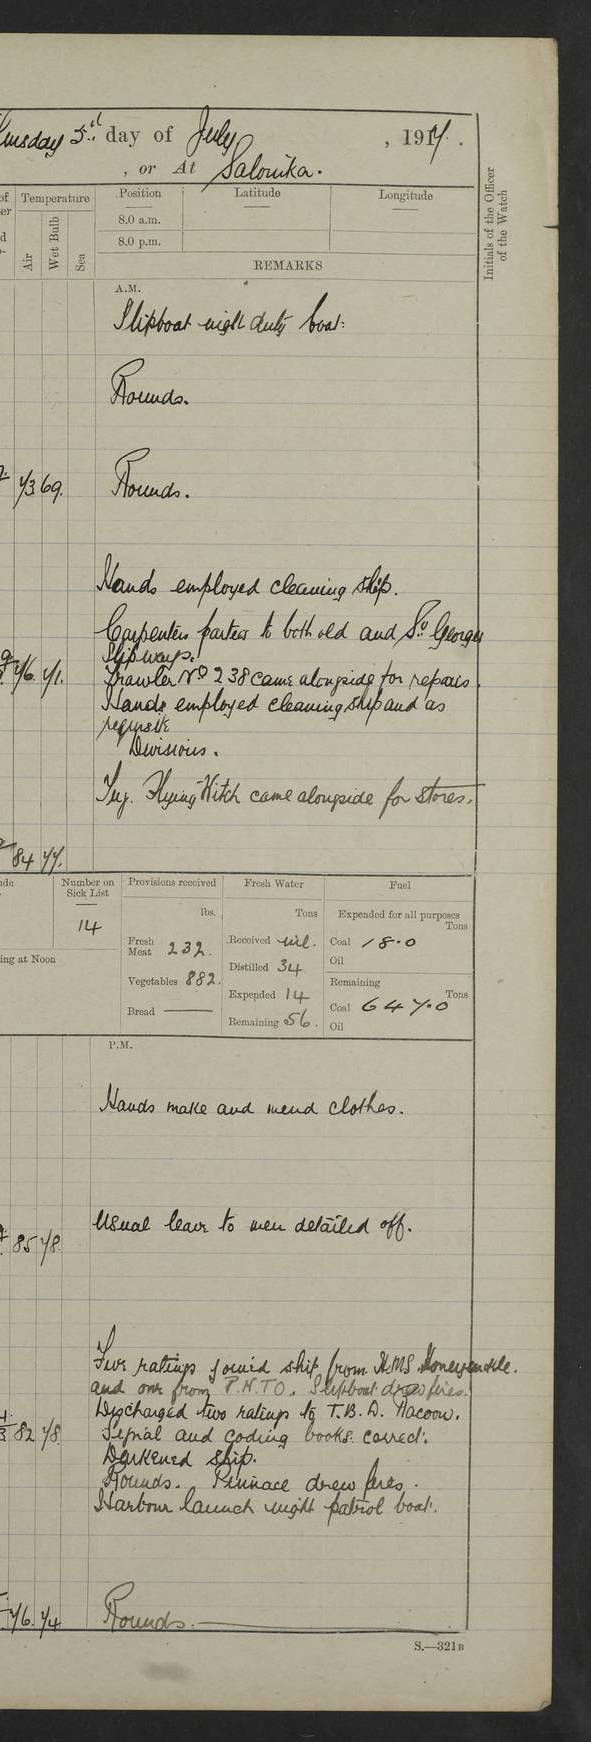 day of July, 1917.
, or At Salonika.
Temperature Position Latitude Longitude
Air Wet Bulb Sea
8.0 a.m.
8.0 p.m.
Initials of the Officer of the Watch
REMARKS
A.M.
Slipboat night duty boat.
Rounds.
73 69. Rounds.
Hands employed cleaning ship.
Carpenters parties to both old and St. Georges
Slipways.
76. 71. Trawler No 238 came alongside for repairs.
Hands employed cleaning ship and as
requisite
Divisions.
Tug. Flying Witch came alongside for stores.
84 77.
Number on Sick List Provisions received Fresh Water Fuel
14
lbs. Tons Expended for all purposes
Tons
Fresh Meat 232. Received nil. Coal 18.0
Oil
Vegetables 882. Distilled 34 Remaining
Expended 14 Tons
Bread —— Remaining 56. Coal 647.0
Oil
ing at Noon
P.M.
Hands make and mend clothes.
Usual leave to men detailed off.
85 78
Five ratings joined ship from H.M.S. Honeysuckle.
and one from P.N.T.O. Slipboat drew fires.
Discharged two ratings to T.B.D. Racoon.
82 78 Signal and coding books correct.
Darkened ship.
Rounds. Pinnace drew fires.
Harbour launch night patrol boat.
76. 74 Rounds.
S.—321B